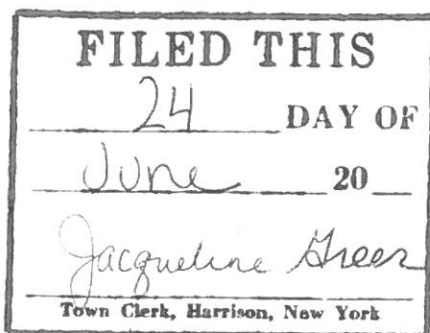 FILED THIS
24 DAY OF
June 20
Jacqueline Greer
Town Clerk, Harrison, New York